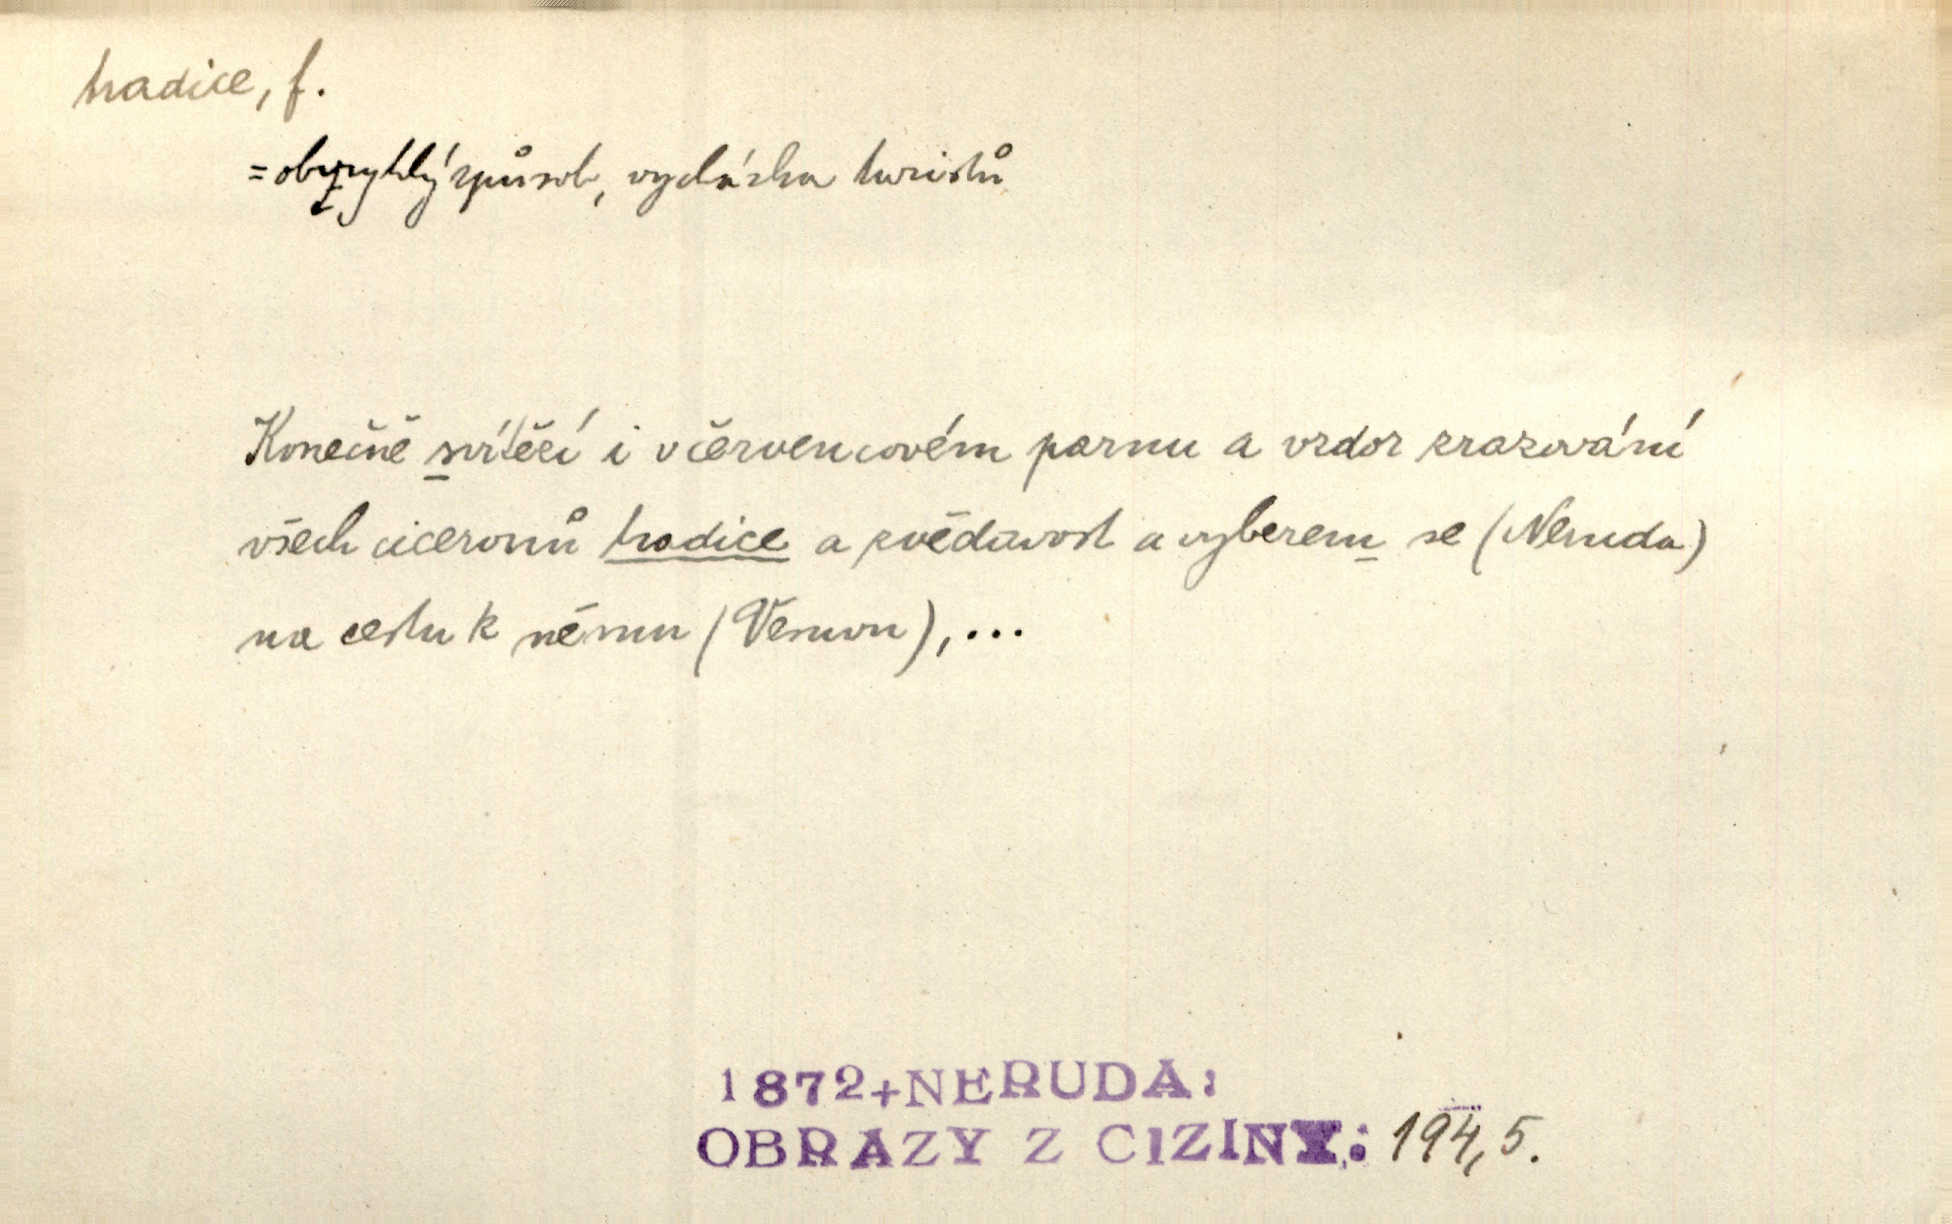 tradice, f.
= obvyklý způsob, vycházka turistů
Konečně svítězí i v červencovém parnu a vzdor zrazování
všech ciceronů tradice a zvědavost a vyberem se (Neruda)
na cestu k němu (Vesuvu), ...
1872+NERUDA:
OBRAZY Z CIZINY: 194, 5.